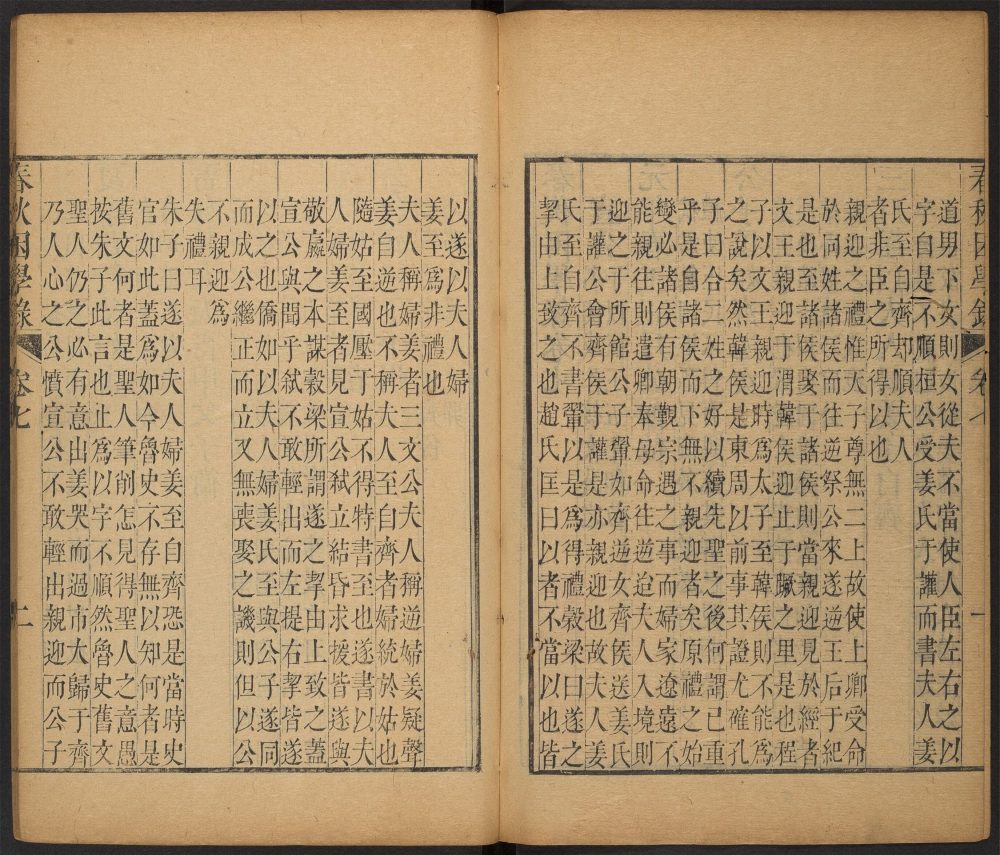 春秋困學錄
卷七
一
道男下女則女從夫不當使人臣左右之以
字自是不順桓公受姜氏于讙而書夫人姜
氏至自齊却順夫人
者非臣之所得以也
親迎之禮惟天子尊無二上故使上卿受命
於同姓諸侯而往逆祭公來遂逆王后于紀
是也侯至諸侯娶于諸侯則當親迎見於經者
文王親迎于渭韓侯迎止于蹶之里是也程
子以文王親迎時爲太子至韓侯則不能爲
之說矣然韓侯是東周以前事其證尤確孔
子曰合二姓之好以續先聖之後何謂已重
乎是自諸侯而下無不親迎者矣原禮之始
變必諸侯有朝覲宗遇之事而婦家遼遠不
能親往則遣卿奉母命往逆迨夫人入境則
迎之于所館公子翬如齊逆女齊侯送姜氏
于讙公會齊侯于讙是亦親迎也故夫人姜
氏至自齊不書翬以是爲得禮穀梁曰遂之
挈由上致之也趙氏匡曰以者不當以也皆
以遂以夫人婦
姜至爲非禮也
夫人稱婦姜者三文公夫人稱逆婦姜疑聲
姜自逆也不稱夫人至自齊者婦統於姑也
隨姑至國壓于姑不得特書至也遂書以夫
人婦姜至者見宣公弒立結昏求援皆遂與
敬嬴之本謀穀梁所謂遂之挈由上致之蓋
宣公與聞乎弒不敢輕出而左提右挈皆遂
以之也僑如以夫人婦姜氏至與公子遂同
而成公繼正而立又無喪娶之譏則但以公
不親迎爲
失禮耳
朱子曰遂以夫人婦姜至自齊恐是當時史
官如此蓋爲如今魯史不存無以知何者是
舊文何者是聖人筆削怎見得聖人之意愚
按朱子此言也止爲以字不順然魯史舊文
聖人仍之必有意出姜哭而過市大歸于齊
乃人心之公憤宣公不敢輕出親迎而公子
春秋困學錄
卷七
二